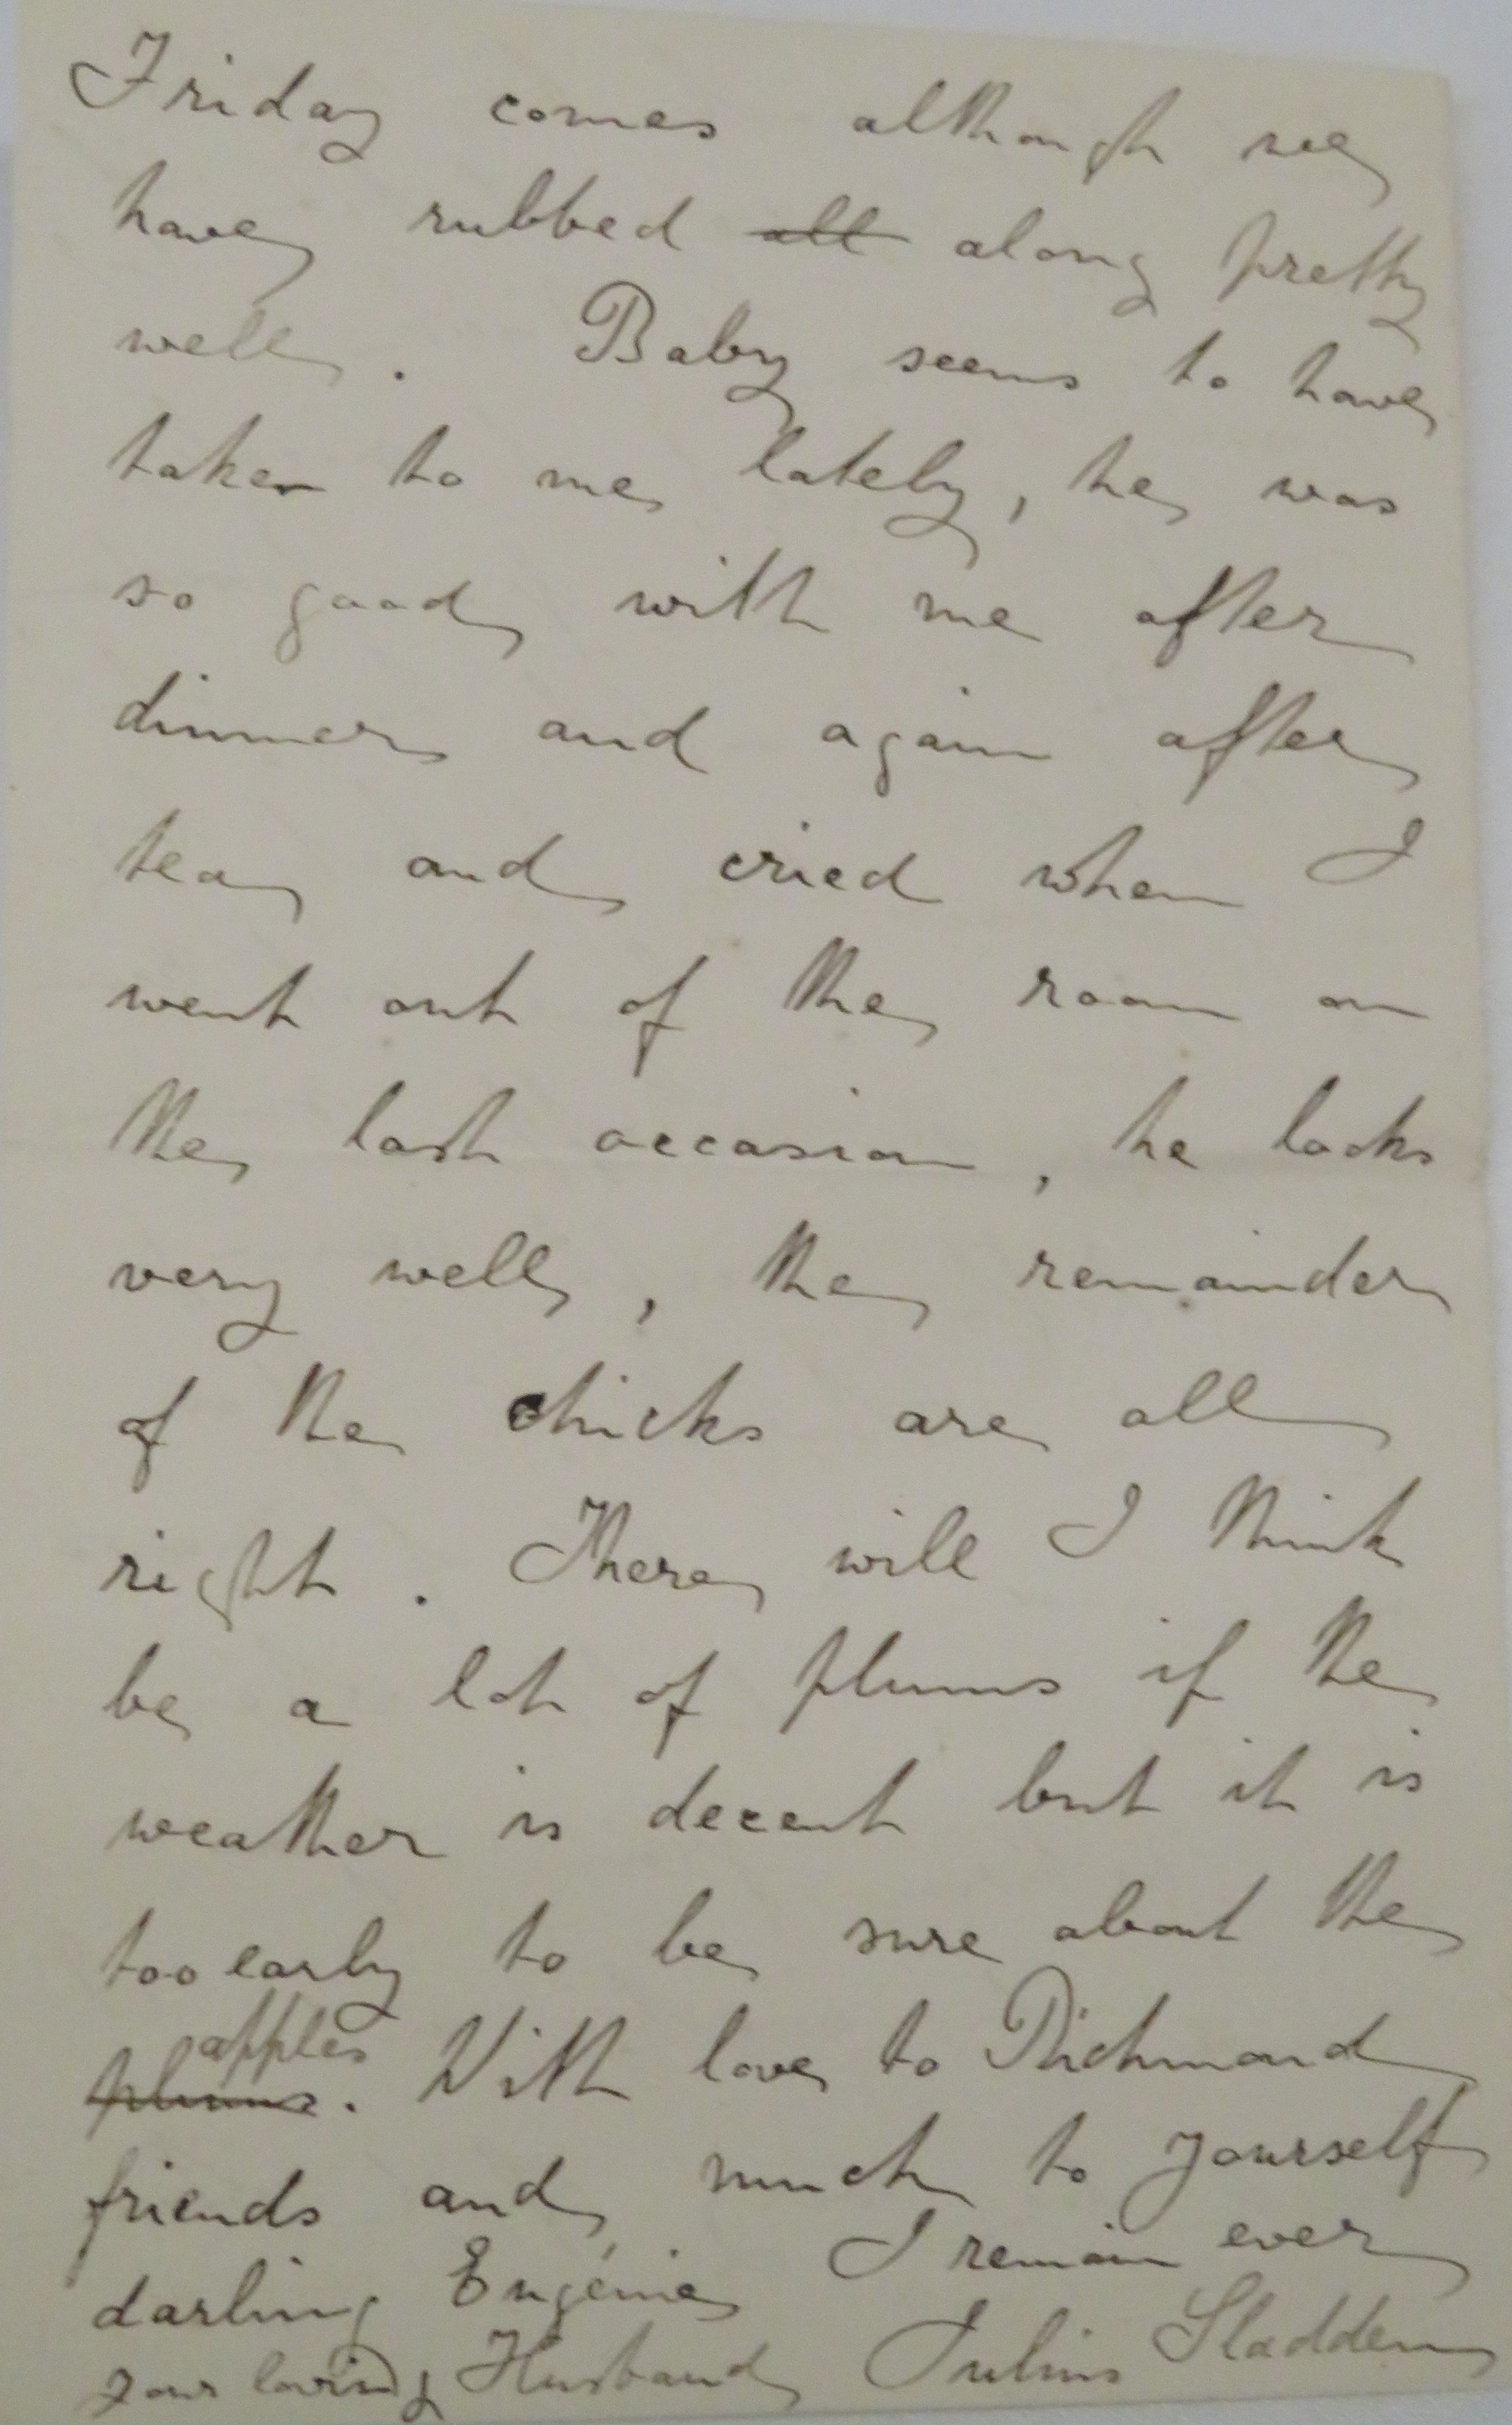 Friday comes although we
have rubbed ~~all~~ along pretty
well. Baby seems to have
taken to me lately, he was
so good with me after
dinner and again after
tea and cried when I
went out of the room on
the last occasion, he looks
very well, the remainder
of the chicks are all
right. There will I think
be a lot of plums if the
weather is decent but it is
too early to be sure about the
apples
~~plums~~. With love to Richmond
friends and much to yourself
darling Eugénie I remain ever
your loving Husband Julius Sladden